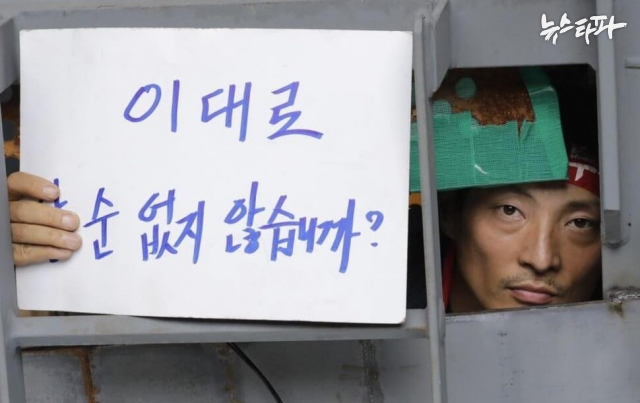 뉴스타파
이대로
순 없지 않습니까?